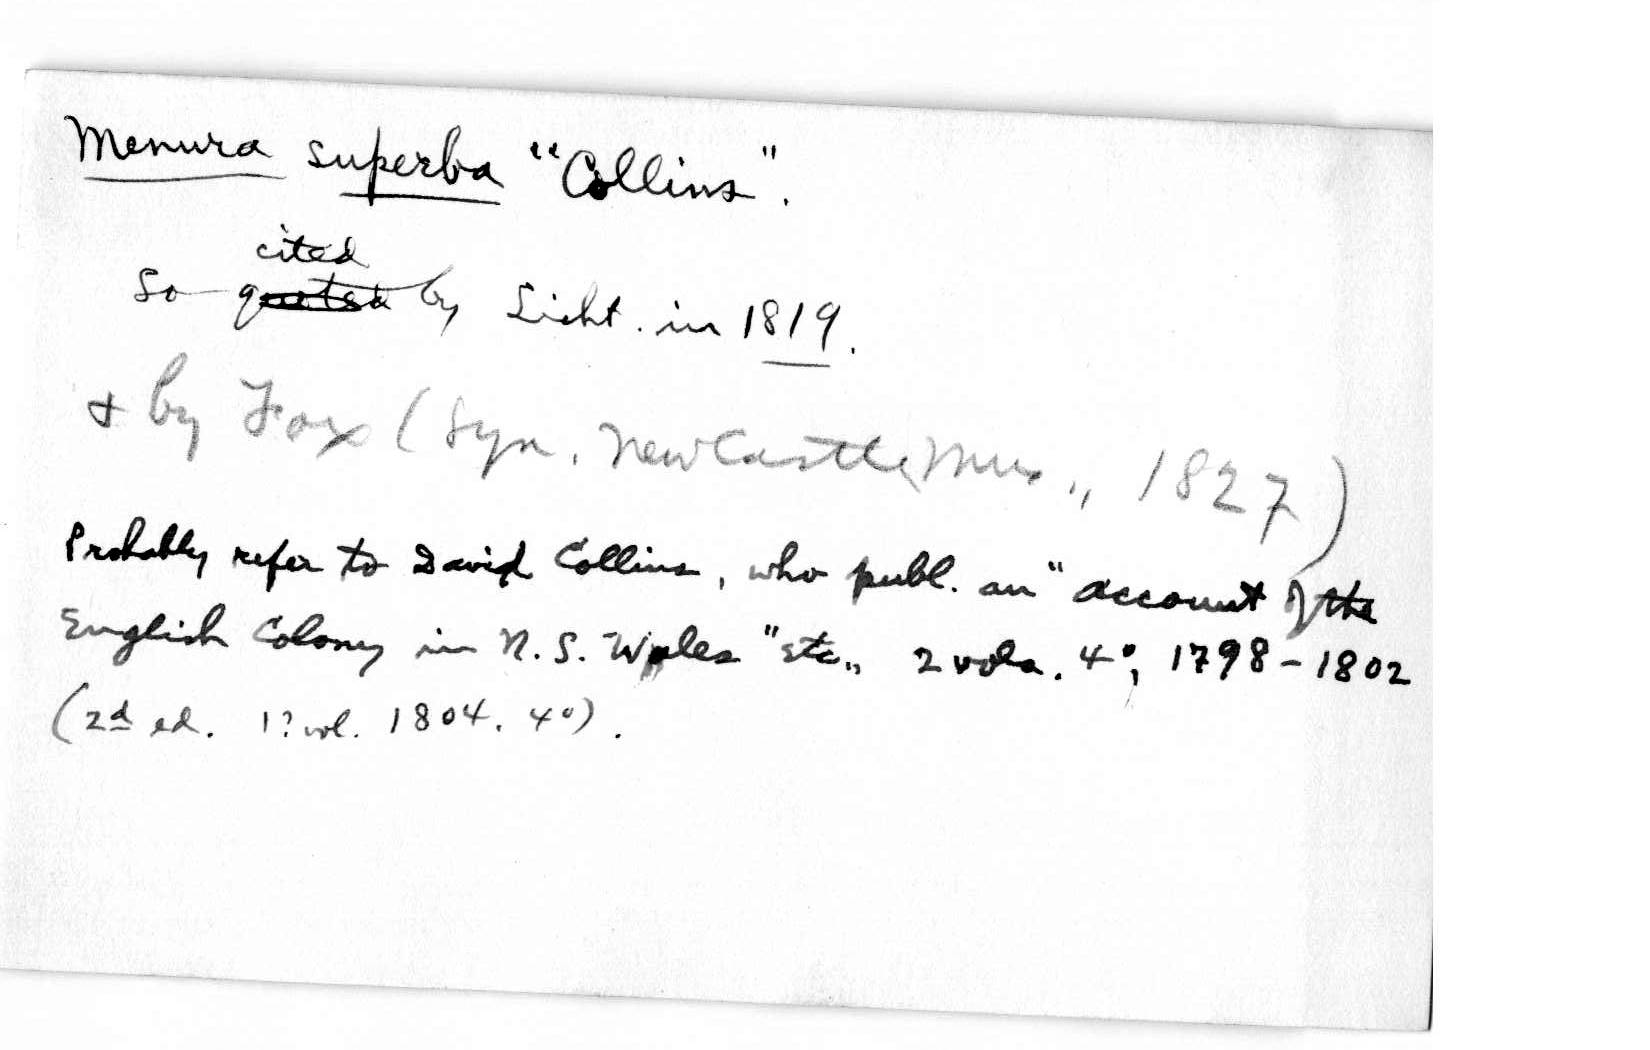 Menura superba "Collins".
cited
So quoted by Licht. in 1819.
+ by Fox (Syn. Newcastle Mus., 1827)
Probably refer to David Collins, who publ. an "account of the
English Colony in N. S. Wales" etc., 2 vols. 4°, 1798-1802
(2d ed. 1? vol. 1804. 4°).